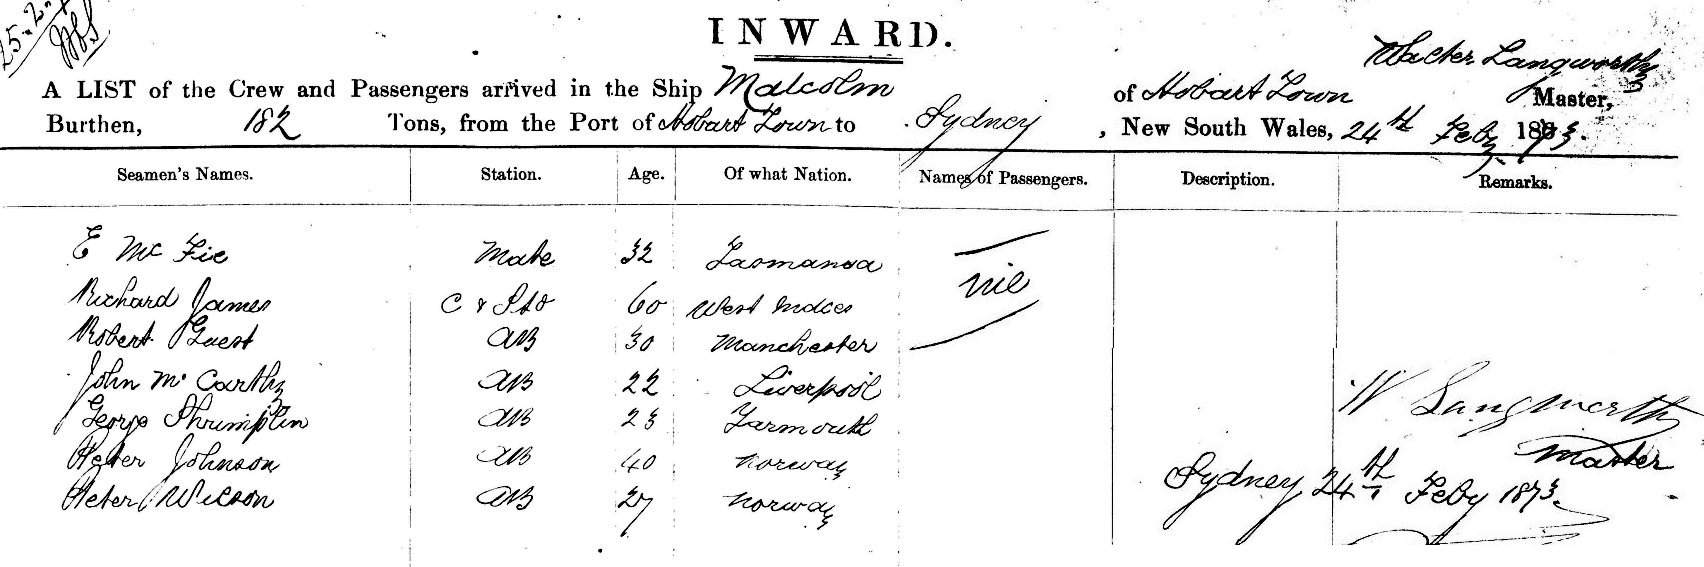 25.2.
INWARD.
Walter Langworthy
A LIST of the Crew and Passengers arrived in the Ship Malcolm of Hobart Town Master,
Burthen, 182 Tons, from the Port of Hobart Town to Sydney, New South Wales, 24th Feby 1873.
Seamen's Names. Station. Age. Of what Nation. Names of Passengers. Description. Remarks.
E Mc Fie Mate 32 Tasmansa
nil
Richard James C & Std 60 West Indies
Robert Guest AB 30 Manchester
John Mc Carthy AB 22 Liverpool
George Shrimplin AB 23 Yarmouth
Peter Johnson AB 40 Norway
Peter Wilson AB 27 Norway
W Langworthy
Master
Sydney 24th Feby 1873.